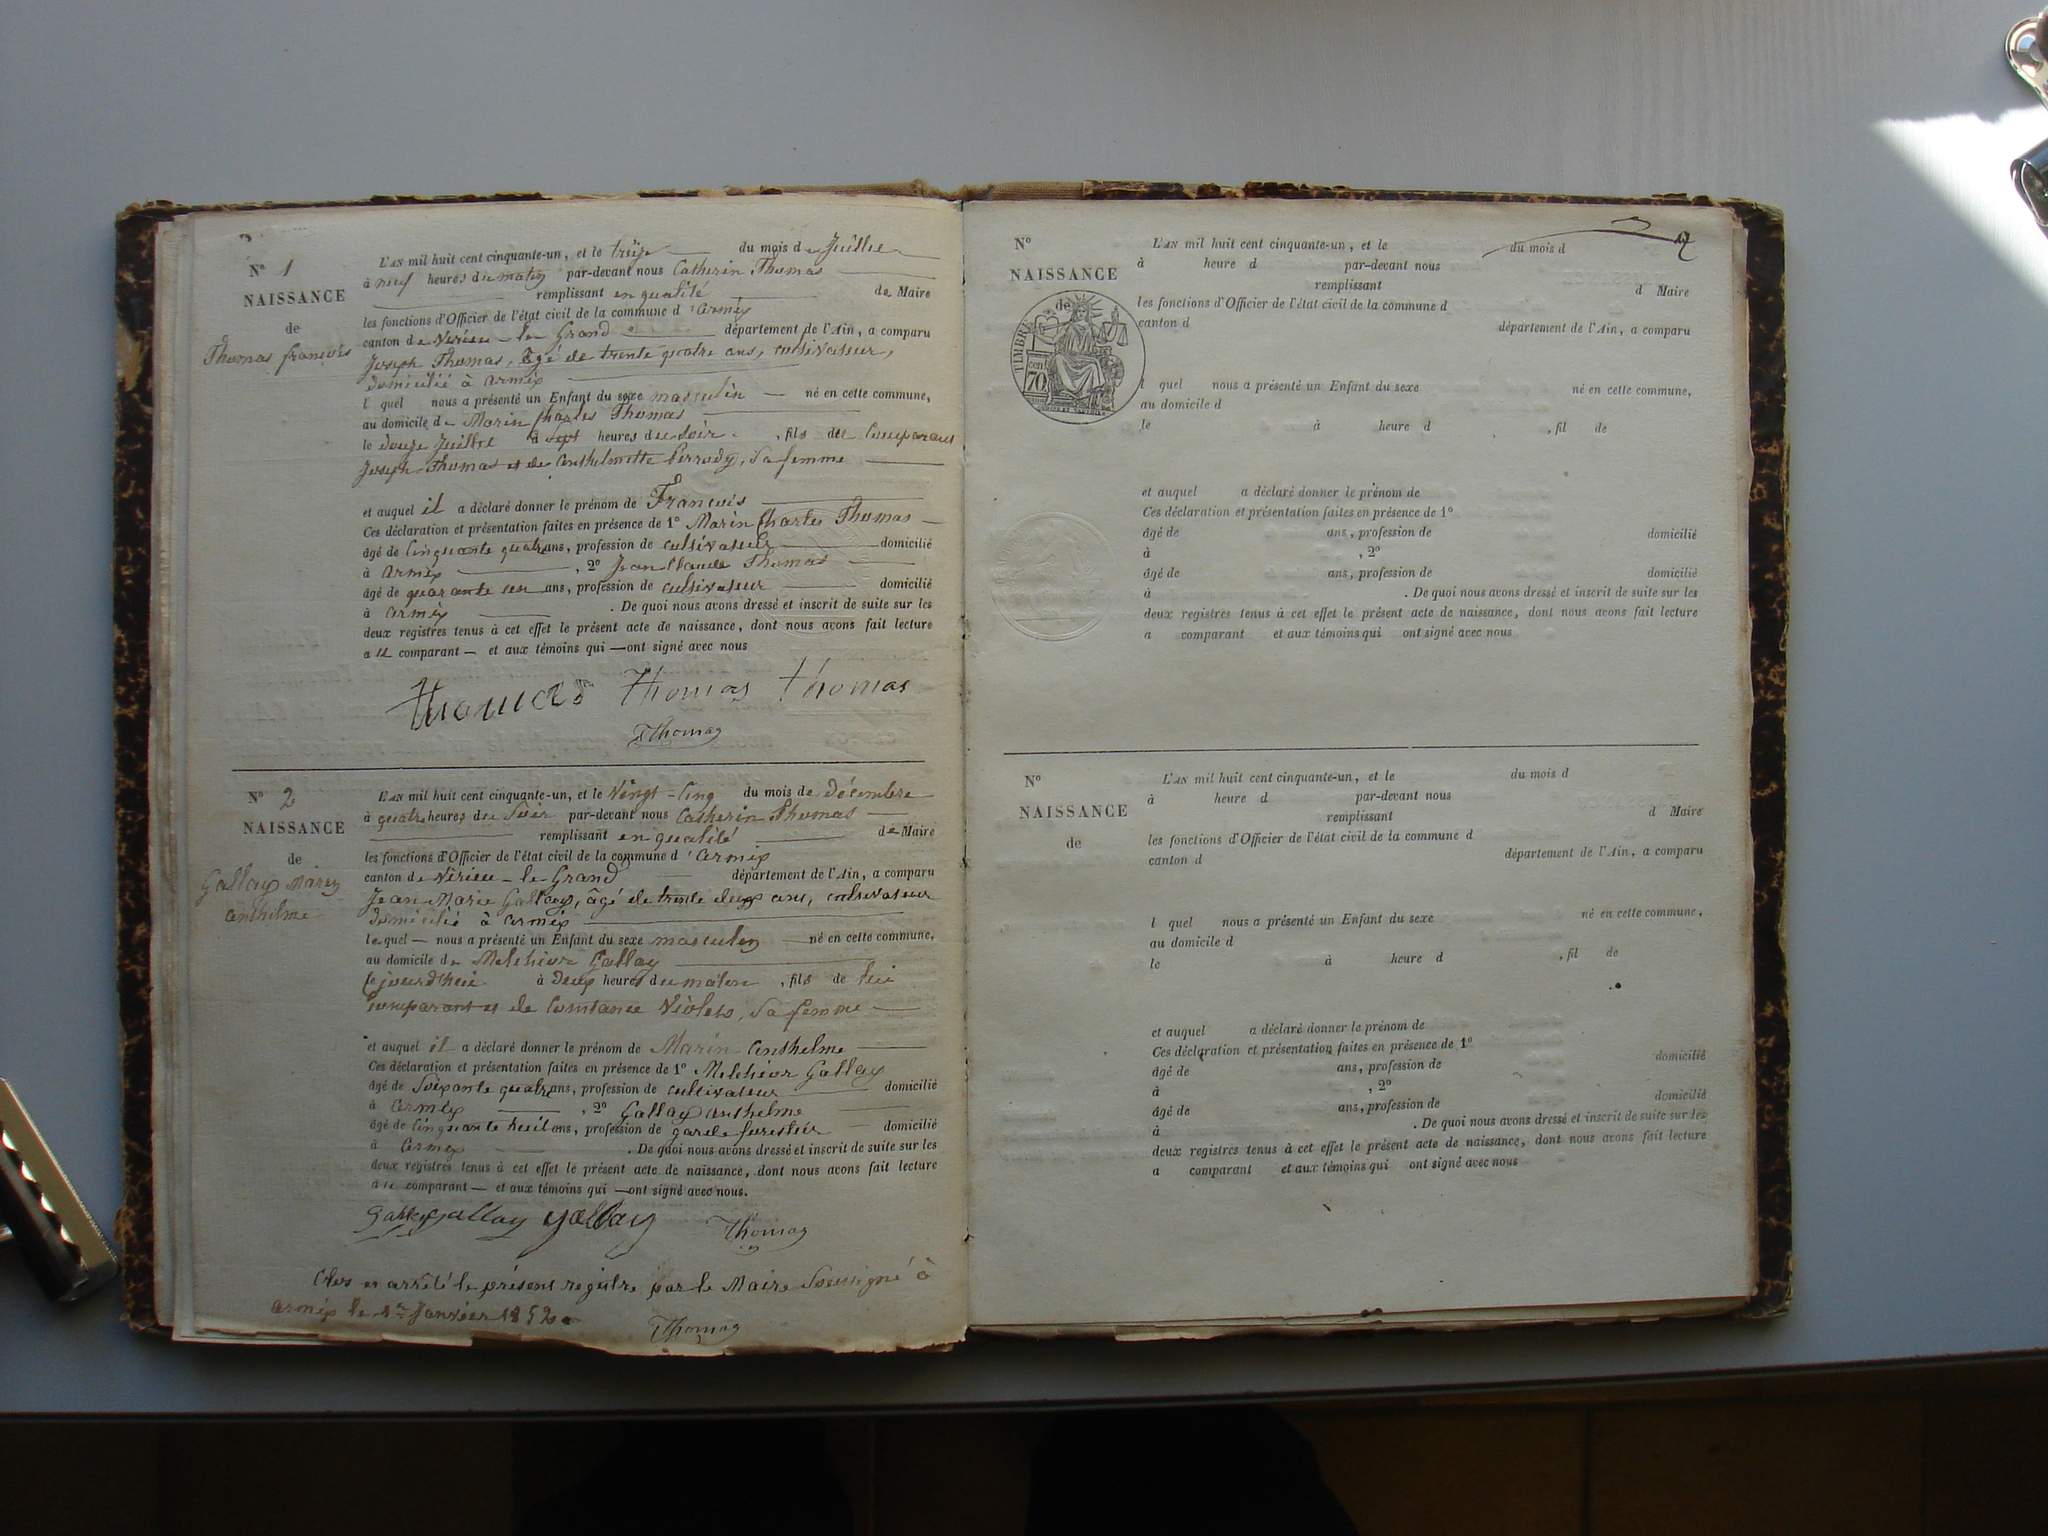 N° 1
NAISSANCE
de
Thomas françois
L'AN mil huit cent cinquante-un, et le treize du mois de Juillet
à neuf heures du matin par-devant nous Catherin Thomas
remplissant en qualité de Maire
les fonctions d'Officier de l'état civil de la commune d'armix
canton de Virieu-le Grand département de l'Ain, a comparu
Joseph Thomas, âgé de trente quatre ans, cultivateur,
domicilié à armix
l quel nous a présenté un Enfant du sexe masculin né en cette commune,
au domicile de Marin Charles Thomas
le douze Juillet à Sept heures du Soir, fils de Comparant
Joseph Thomas et de anthelmette Perrody, Sa femme
et auquel il a déclaré donner le prénom de François
Ces déclaration et présentation faites en présence de 1° Marin Charles Thomas
âgé de Cinquante quatre ans, profession de cultivateur domicilié
à armix, 2° Jean Claude Thomas
âgé de quarante un ans, profession de cultivateur domicilié
à armix. De quoi nous avons dressé et inscrit de suite sur les
deux registres tenus à cet effet le présent acte de naissance, dont nous avons fait lecture
au comparant et aux témoins qui ont signé avec nous
Thomas Thomas Thomas
Thomas
N° 2
NAISSANCE
de
Gallay Marin
anthelme
L'AN mil huit cent cinquante-un, et le Vingt-Cinq du mois de décembre
à quatre heures du Soir par-devant nous Catherin Thomas
remplissant en qualité de Maire
les fonctions d'Officier de l'état civil de la commune d'armix
canton de Virieu-le-Grand département de l'Ain, a comparu
Jean Marie Gallay, âgé de trente deux ans, cultivateur
domicilié à armix
lequel nous a présenté un Enfant du sexe masculin né en cette commune,
au domicile de Melchior Gallay
Cejourd'hui à Deux heures du matin, fils de lui
Comparant et de Constance Violet, Sa femme
et auquel il a déclaré donner le prénom de Marin anthelme
Ces déclaration et présentation faites en présence de 1° Melchior Gallay
âgé de Soixante quatre ans, profession de cultivateur domicilié
à armix, 2° Gallay anthelme
âgé de Cinquante huit ans, profession de garde forestier domicilié
à armix. De quoi nous avons dressé et inscrit de suite sur les
deux registres tenus à cet effet le présent acte de naissance, dont nous avons fait lecture
au comparant et aux témoins qui ont signé avec nous.
Gallay Gallay Gallay Thomas
Clos et arrêté le présent registre par le Maire Soussigné à
armix le 1er Janvier 1852.
Thomas
2
N°
NAISSANCE
de
TIMBRE
70
L'AN mil huit cent cinquante-un, et le du mois d
à heure d par-devant nous
remplissant d Maire
les fonctions d'Officier de l'état civil de la commune d
canton d département de l'Ain, a comparu
l quel nous a présenté un Enfant du sexe né en cette commune,
au domicile d
le à heure d , fil de
et auquel a déclaré donner le prénom de
Ces déclaration et présentation faites en présence de 1°
âgé de ans, profession de domicilié
à , 2°
âgé de ans, profession de domicilié
à . De quoi nous avons dressé et inscrit de suite sur les
deux registres tenus à cet effet le présent acte de naissance, dont nous avons fait lecture
a comparant et aux témoins qui ont signé avec nous
N°
NAISSANCE
de
L'AN mil huit cent cinquante-un, et le du mois d
à heure d par-devant nous
remplissant d Maire
les fonctions d'Officier de l'état civil de la commune d
canton d département de l'Ain, a comparu
l quel nous a présenté un Enfant du sexe né en cette commune,
au domicile d
le à heure d , fil de
et auquel a déclaré donner le prénom de
Ces déclaration et présentation faites en présence de 1°
âgé de ans, profession de domicilié
à , 2°
âgé de ans, profession de domicilié
à . De quoi nous avons dressé et inscrit de suite sur les
deux registres tenus à cet effet le présent acte de naissance, dont nous avons fait lecture
a comparant et aux témoins qui ont signé avec nous